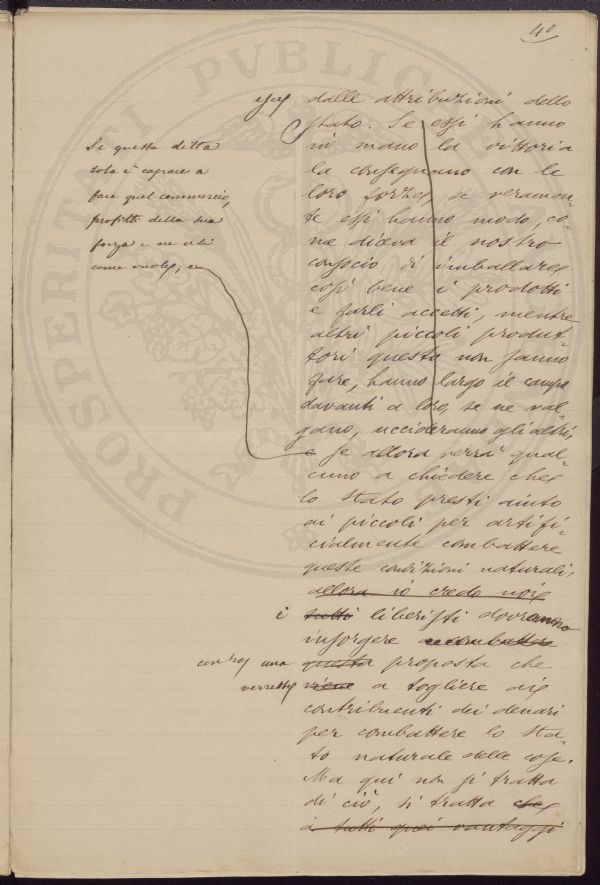 40
dalle attribuzioni dello
stato. Se essi hanno
in mano la vittoria
la conseguano con le
loro forze, se veramen-
te essi hanno modo, co-
me diceva il nostro
consocio di imballare
così bene i prodotti
e farli accetti, mentre
altri piccoli produt-
tori questo non sanno
fare, hanno largo il campo
davanti a loro, se ne val-
gano, uccideranno gli altri,
Se questa ditta
sola è capace a
fare quel commercio,
profitti della sua
forza e ne usi
come vuole; e
e se allora verrà qual-
cuno a chiedere che
lo stato presti aiuto
ai piccoli per artifi-
cialmente combattere
queste condizioni naturali,
allora io credo noi
i tutti liberisti dovranno
insorgere a combattere
contro una questa proposta che
verrebbe viene a togliere ai
contribuenti dei denari
per combattere lo sta-
to naturale delle cose.
Ma qui non si tratta
di ciò, si tratta che
a tutti quei vantaggi
PROSPERITATI PVBLICAE